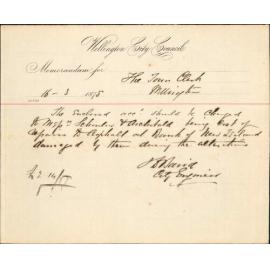 Wellington City Council
Memorandum for
The Town Clerk
Wellington
16 - 3 1895
The Enclosed acc^t should be charged
to Mess^rs Schouler & Archibald being cost of
repairs to Asphalt at Bank of New Zealand
damaged by them during the alterations
City Engineer